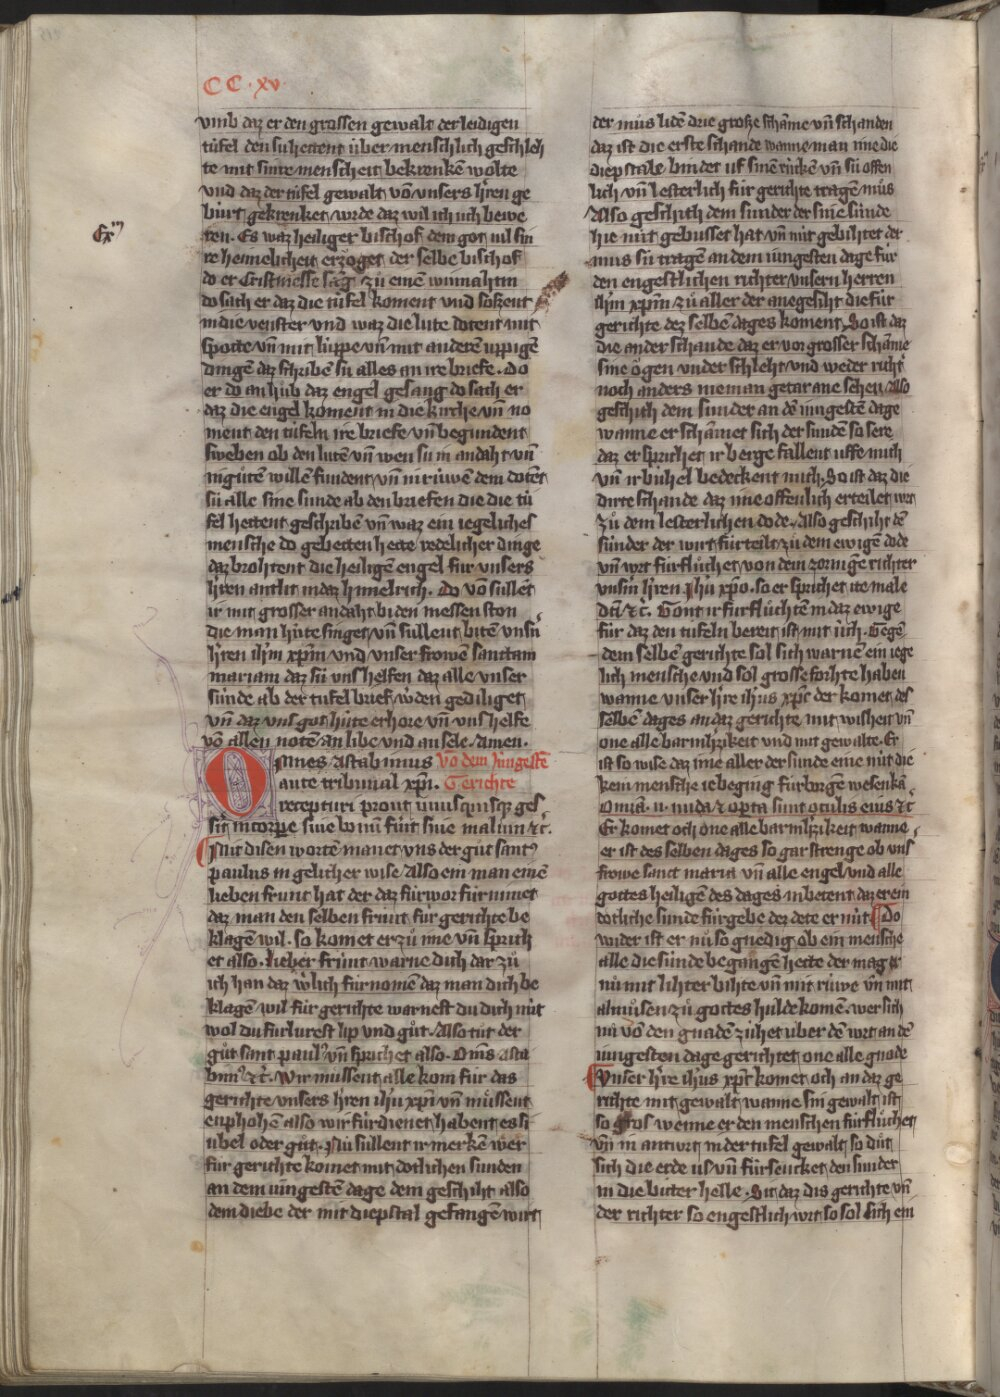 CC·xv·
vmb daz er den grossen gewalt der leidigen
túfel den sú hettent úber menschlich geschleh
te mit sinre menscheit bekrenkē wolte
vnd daz der túfel gewalt vō vnsers h̄ren ge
búrt gekrenket wrde daz wil ich úch bewe
Exm
ren. Es waz heiliger bischof dem got vil sin
re heimelicheit erzöget der selbe bischof
do er Cristmesse sāg zů eime winnahtin
do sach er daz die túfel koment vnd soẞent
in die venster vnd waz die lúte dotent mit
spotte vn̄ mit lúppe vn̄ mit anderē vppigē
dingen daz schribē sú alles an ire briefe. do
er do an hůb daz engel gesang do sach er
daz die engel koment in die kirche vn̄ no
ment den túfeln ire briefe vn̄ begundent
sweben ob den lutē vn̄ wen sú in andaht vn̄
in gůtē willē fundent vn̄ in rúwē dem dotēt
sú alle sine sunde ab den briefen die die tú
fel hettent geschribē vn̄ waz ein iegeliches
mensche do gebetten hette redelicher dinge
daz brohtent die heiligē engel fúr vnsers
h̄ren antlit in daz himelrich. Do vō súllēt
ir mit grosser andaht bi den messen ston
die man húte singet vn̄ sullent bitē vnsn̄
h̄ren ih̄m xp̄m vnd vnser frowē sanctam
mariam daz sú vns helfen daz alle vnser
sünde ab der tufel brief wͦden gediliget
vn̄ daz vns got húte erhöre vn̄ vns helfe
vō allen nötē an libe vnd an sele. Amen.
Omnes astabimus Vō dem Jungestē
ante tribunal xp̄i. Gerichte
recepturi prout vnusquisqz ges
sit in corpe siue bonū fuit siue malum ⁊c̄.
Mit disen wortē manet vns der gůt sant9
paulus in gelicher wise Also ein man einē
lieben frunt hat der daz fúrwor fúrnimet
daz man den selben frúnt fúr gerichte be
klagē wil. so komet er zů ime vn̄ sprich
et also. Lieber frúnt warne dich dar zů
ich han daz wͦlich fúrnomē daz man dich be
klagē wil fúr gerichte warnest du dich nút
wol du fúrlurest lip vnd gůt. Also tůt der
gůt sant paul9 vn̄ sprichet also. Om̄s asta
bim9 ⁊c̄. Wir müssent alle kom̄ fúr das
gerichte vnsers h̄ren ih̄u xp̄i vn̄ müssent
enphohē also wir fúrdienet habent es si
úbel oder gůt. Nu súllent ir merkē wer
fúr gerichte komet mit dötlichen sunden
an dem iungestē dage dem geschiht also
dem diebe der mit diepstal gefangē wirt
der můs lidē drie große schāme vn̄ schanden
daz ist die erste schande wanne man ime die
diepstale bindet vf sinē rúcken vn̄ sú offen
lich vn̄ lesterlich fúr gerichte tragē můs
Also geschiht dem sunder der sine súnde
hie nút gebusset hat vn̄ nút gebihtet der
mus sú tragē an dem iungesten dage fúr
den engestlichen richter vnsern herren
ih̄m xp̄m zů aller der anegesiht die fúr
gerichte dez selbē dages koment. So ist daz
die ander schande daz er vor grosser schāme
sine ögen vnder schleht vnd weder riht
noch anders nieman getar ane sehen. Also
geschiht dem sunder an dē iungestē dage
wanne er schāmet sich der sundē so sere
daz er sprichet ir berge fallent vffe mich
vn̄ ir búhel bedeckent mich. So ist daz die
dirte schande daz ime offenlich erteilet wrt
zů dem lesterlichen dode. Also geschiht dē
súnder der wirt fúrteilt zů dem ewigē dode
vn̄ wrt fúrflůchet von dem zornigē richter
vnsn̄ h̄ren Jh̄u xp̄o. so er sprichet ite male
dc̄ti ⁊c̄. Gont ir fúrflůchtē in daz ewige
fúr daz den tufeln bereit ist mit úch. Gegē
dem selbē gerichte sol sich warnē ein iege
lich mensche vnd sol grosse forhte haben
wanne vnser h̄re ih̄us xp̄c der komet des
selbē dages an daz gerichte mit wisheit vn̄
one alle barmh̄zikeit vnd mit gewalte. Er
ist so wise daz ime aller der sunde eine nút die
kein mensche ie beging fúrborgē wesen kā
Omīa. n. nuda ⁊ opta sunt oculis eius ⁊c̄
Er komet och one alle barmh̄zikeit wanne
er ist des selben dages so gar strenge ob vns
frowe sanct maria vn̄ alle engel vnd alle
gottes heiligē des dages in betent daz er ein
dötliche sunde fúrgebe dez dete er nút. Do
wider ist er nů so gnedig ob ein mensche
alle die sünde begangē hette der mag er
nů mit lihter bihte vn̄ mit rúwe vn̄ mit
almůsen zů gottes hulde komē. wer sich
nů vō den gnadē zúhet úber dē wrt an dē
iungesten dage gerichtet one alle gnode
Vnser h̄re ih̄us xp̄c komet och an daz ge
richte mit gewalt wanne sin gewalt ist
so gros wenne er den menschen fúrflůchet
vn̄ in antwrt in der tufel gewalt so důt
sich die erde vf vn̄ fúrsencket den sunder
in die bitter helle. Sit daz dis gerichte vn̄
der richter so engestlich wrt so sol sich ein